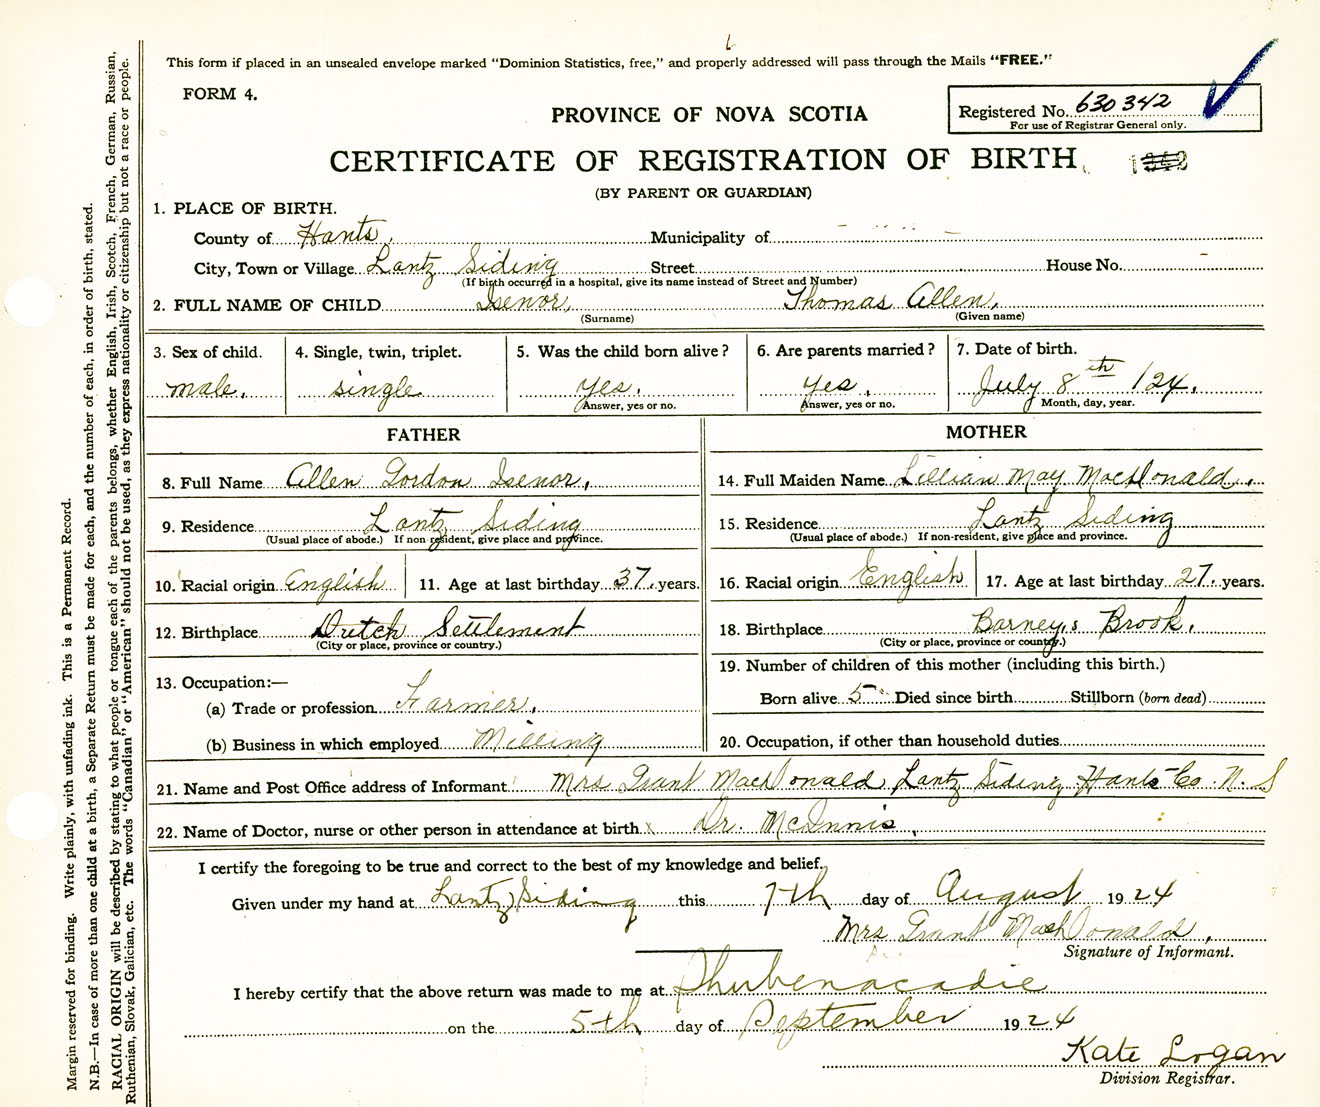 This form if placed in an unsealed envelope marked "Dominion Statistics, free," and properly addressed will pass through the Mails "FREE."
FORM 4.
PROVINCE OF NOVA SCOTIA
Registered No. 630342
For use of Registrar General only.
CERTIFICATE OF REGISTRATION OF BIRTH
(BY PARENT OR GUARDIAN)
1. PLACE OF BIRTH.
County of Hants. Municipality of
City, Town or Village Lantz Siding Street House No.
(If birth occurred in a hospital, give its name instead of Street and Number)
2. FULL NAME OF CHILD Isenor, Thomas Allen.
(Surname) (Given name)
3. Sex of child. 4. Single, twin, triplet. 5. Was the child born alive? 6. Are parents married? 7. Date of birth.
male. single yes. yes. July 8th /24.
Answer, yes or no. Answer, yes or no. Month, day, year.
FATHER MOTHER
8. Full Name Allen Gordon Isenor. 14. Full Maiden Name Lillian May MacDonald.
9. Residence Lantz Siding 15. Residence Lantz Siding
(Usual place of abode.) If non resident, give place and province. (Usual place of abode.) If non-resident, give place and province.
10. Racial origin English 11. Age at last birthday 37. years. 16. Racial origin English 17. Age at last birthday 27. years.
12. Birthplace Dutch Settlement 18. Birthplace Barney,s Brook.
(City or place, province or country.) (City or place, province or country.)
13. Occupation:— 19. Number of children of this mother (including this birth.)
(a) Trade or profession Farmer. Born alive 5 Died since birth Stillborn (born dead)
(b) Business in which employed Milling 20. Occupation, if other than household duties
21. Name and Post Office address of Informant Mrs Grant MacDonald, Lantz Siding, Hants Co. N. S
22. Name of Doctor, nurse or other person in attendance at birth Dr. McInnis.
I certify the foregoing to be true and correct to the best of my knowledge and belief.
Given under my hand at Lantz Siding this 7th day of August 1924
Mrs Grant MacDonald.
Signature of Informant.
I hereby certify that the above return was made to me at Shubenacadie
on the 5th day of September 1924
Kate Logan
Division Registrar.
Margin reserved for binding. Write plainly, with unfading ink. This is a Permanent Record.
N.B.—In case of more than one child at a birth, a Separate Return must be made for each, and the number of each, in order of birth, stated.
RACIAL ORIGIN will be described by stating to what people or tongue each of the parents belongs, whether English, Irish, Scotch, French, German, Russian,
Ruthenian, Slovak, Galician, etc. The words "Canadian" or "American" should not be used, as they express nationality or citizenship but not a race or people.